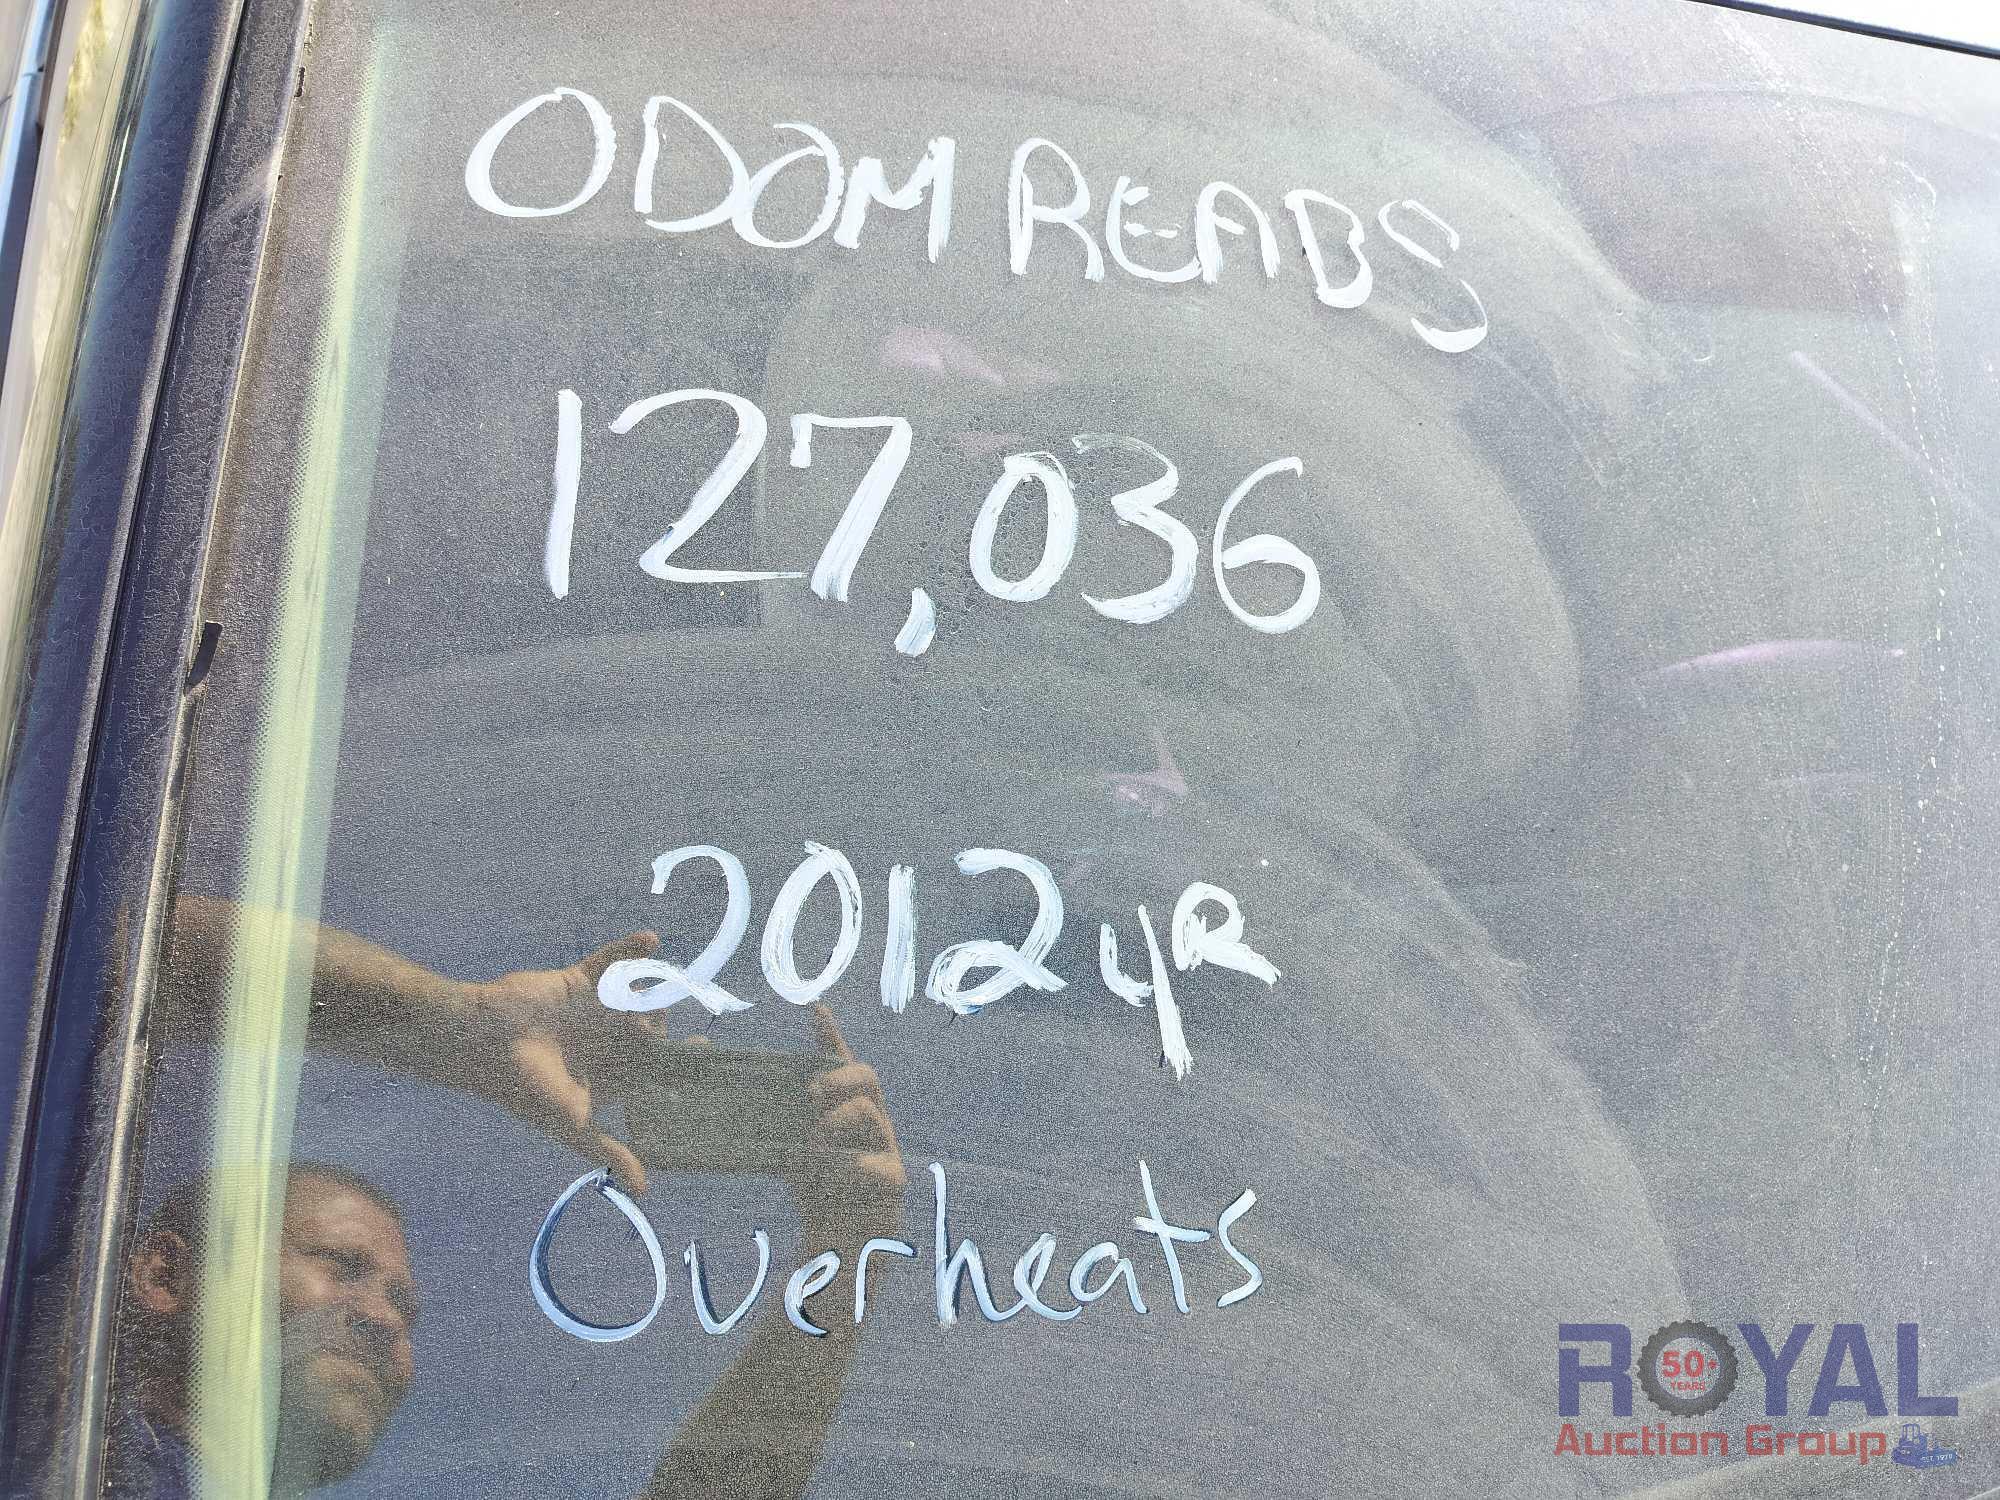 ODOM READS
127,036
2012 YR
Overheats
ROYAL
50+
YEARS
Auction Group
EST. 1979